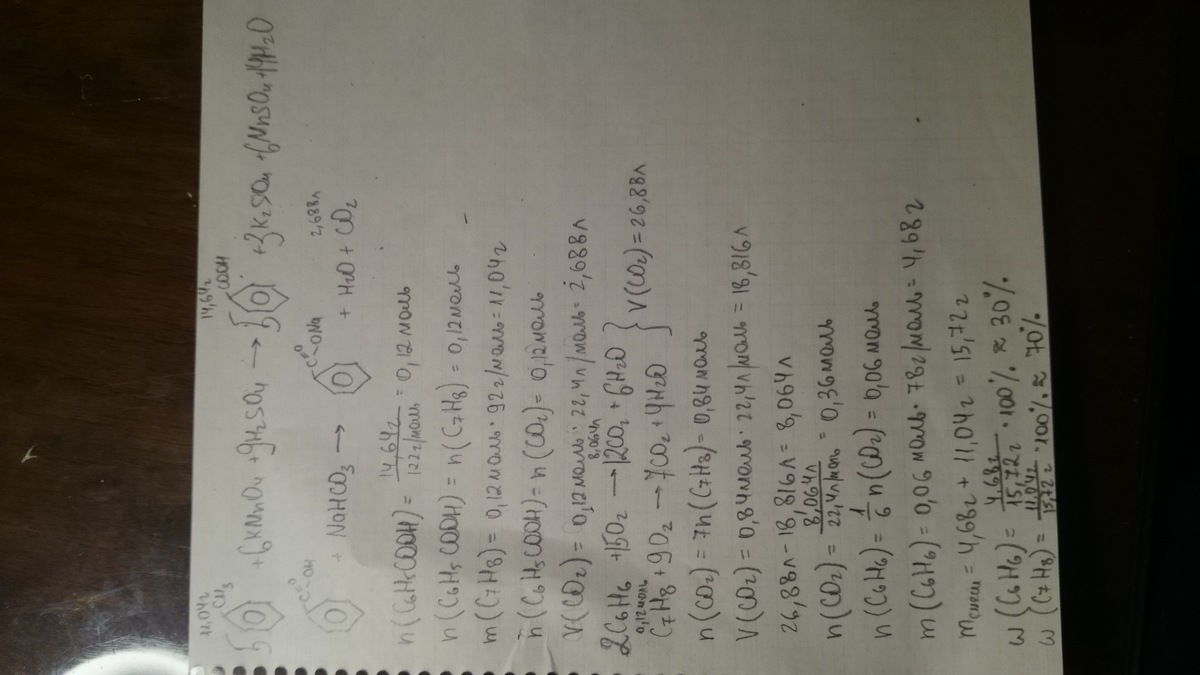 11,04г 14,64г
CH₃ COOH
5 + 6KMnO₄ + 9H₂SO₄ → 5 + 3K₂SO₄ + 6MnSO₄ + 14H₂O
C=O OH + NaHCO₃ → C=O ONa + H₂O + CO₂ 2,688л
n(C₆H₅COOH) = 14,64г / 122г/моль = 0,12моль
n(C₆H₅COOH) = n(C₇H₈) = 0,12моль
m(C₇H₈) = 0,12моль · 92г/моль = 11,04г
n(C₆H₅COOH) = n(CO₂) = 0,12моль
V(CO₂) = 0,12моль · 22,4л/моль = 2,688л
8,064л
2C₆H₆ + 15O₂ → 12CO₂ + 6H₂O
0,12моль
C₇H₈ + 9O₂ → 7CO₂ + 4H₂O } V(CO₂) = 26,88л
n(CO₂) = 7n(C₇H₈) = 0,84моль
V(CO₂) = 0,84моль · 22,4л/моль = 18,816л
26,88л - 18,816л = 8,064л
n(CO₂) = 8,064л / 22,4л/моль = 0,36моль
n(C₆H₆) = 1/6 n(CO₂) = 0,06моль
m(C₆H₆) = 0,06моль · 78г/моль = 4,68г
mсмеси = 4,68г + 11,04г = 15,72г
ω(C₆H₆) = 4,68г / 15,72г · 100% ≈ 30%
ω(C₇H₈) = 11,04г / 15,72г · 100% ≈ 70%